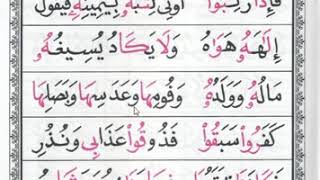 فَإِذَا رَكِبُوا۟ أُوتِىَ كِتَٰبَهُۥ بِيَمِينِهِۦ فَيَقُولُ
إِلَٰهَهُۥ هَوَىٰهُ وَلَا يَكَادُ يُسِيغُهُۥ
مَالُهُۥ وَوَلَدُهُۥ وَفُومِهَا وَعَدَسِهَا وَبَصَلِهَا
كَفَرُوا۟ سَبَقُوا۟ فَذُوقُوا۟ عَذَابِى وَنُذُرِ